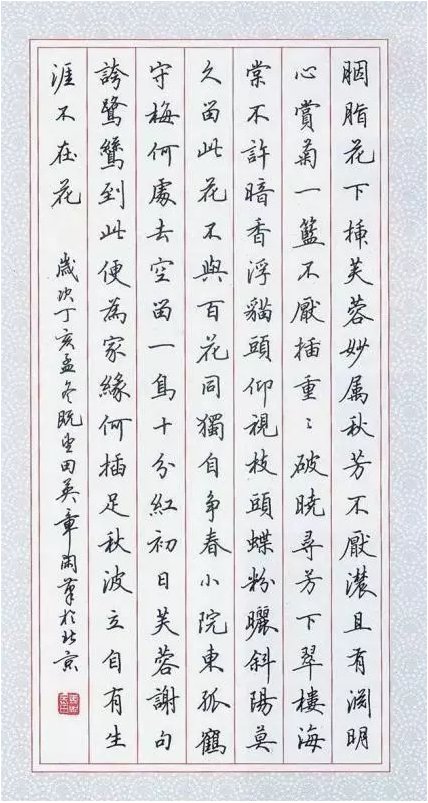 胭脂花下插芙蓉妙属秋芳不厭濃且有淵明
心賞菊一籃不厭插重〻破曉尋芳下翠樓海
棠不許暗香浮貓頭仰視枝頭蝶粉曬斜陽莫
久留此花不與百花同獨自争春小院東孤鶴
守梅何處去空留一鳥十分紅初日芙蓉謝句
誇鷺鷥到此便為家緣何插足秋波立自有生
涯不在花
歲次丁亥孟冬既望田英章開筆於北京